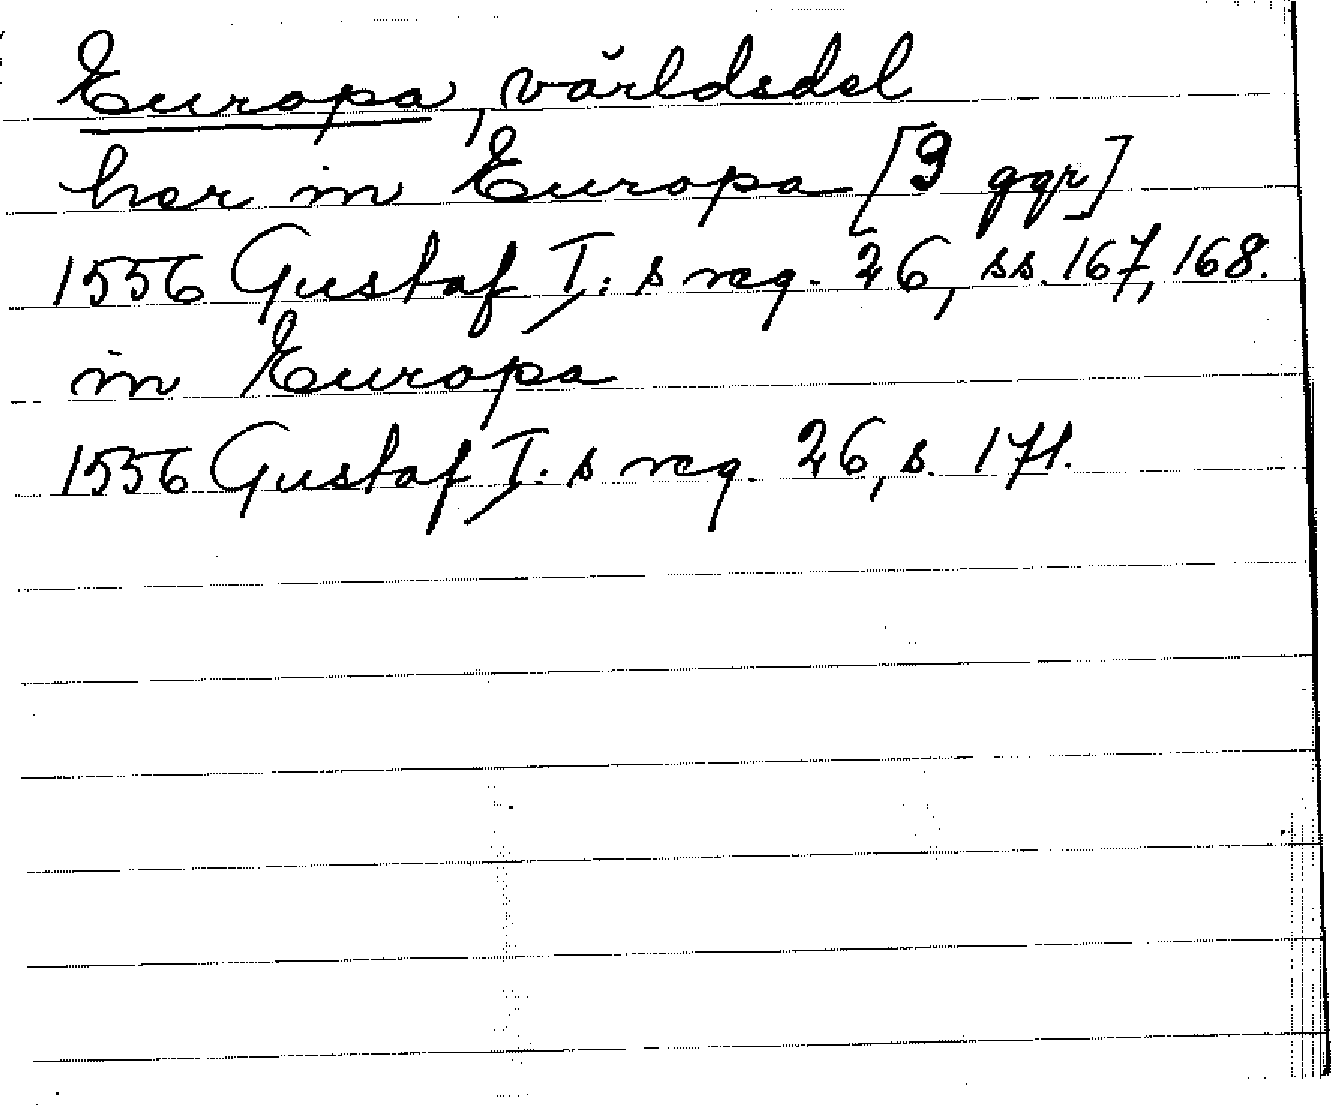 Europa, världsdel
her in Europa [3 ggr]
1556 Gustaf I: s reg. 26, ss. 167, 168.
in Europa
1556 Gustaf I: s reg. 26, s. 171.